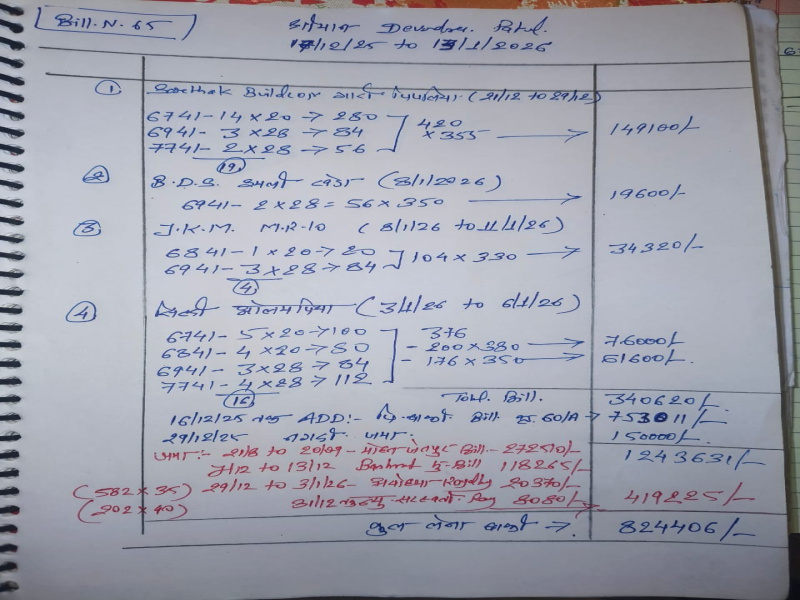 Bill.N. 65
श्रीमान Devendra. Patel.
17/12/25 to 13/1/2026
① Sarthak Buildcon (21/12 to 29/12)
6741- 14 x 20 → 280
6941- 3 x 28 → 84
7741- 2 x 28 → 56
(19)
420 x 355 → 149100/-
② B.D.S. (8/1/2026)
6941- 2 x 28 = 56 x 350 → 19600/-
③ J.K.M. M.R-10 (8/1/26 to 11/1/26)
6841- 1 x 20 → 20
6941- 3 x 28 → 84
(4)
104 x 330 → 34320/-
④ सिल्वर ओलमपिया (3/1/26 to 6/1/26)
6741- 5 x 20 → 100
6841- 4 x 20 → 80
6941- 3 x 28 → 84
7741- 4 x 28 → 112
(16)
376
- 200 x 380 → 76000/-
- 176 x 350 → 61600/-
Total Bill. 340620/-
16/12/25 तक ADD:- पि. बाकी Bill क्र. 60/A → 753011/-
29/12/25 नगदी जमा. 150000/-
1243631/-
जमा:- 21/8 to 20/09 - Bill- 272510/-
7/12 to 13/12 Bill 118265/-
(582 x 35) 29/12 to 3/1/26- 20370/-
(202 x 40) 31/12 8080/- 419225/-
कुल लेना बाकी → 824406/-